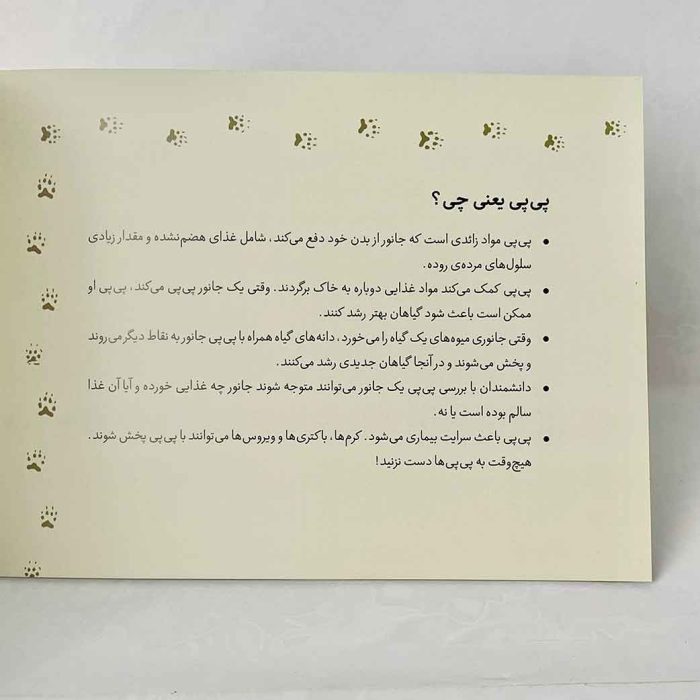 پی‌پی یعنی چی؟
• پی‌پی مواد زائدی است که جانور از بدن خود دفع می‌کند، شامل غذای هضم‌نشده و مقدار زیادی
سلول‌های مرده‌ی روده.
• پی‌پی کمک می‌کند مواد غذایی دوباره به خاک برگردند. وقتی یک جانور پی‌پی می‌کند، پی‌پی او
ممکن است باعث شود گیاهان بهتر رشد کنند.
• وقتی جانوری میوه‌های یک گیاه را می‌خورد، دانه‌های گیاه همراه با پی‌پی جانور به نقاط دیگر می‌روند
و پخش می‌شوند و در آنجا گیاهان جدیدی رشد می‌کنند.
• دانشمندان با بررسی پی‌پی یک جانور می‌توانند متوجه شوند جانور چه غذایی خورده و آیا آن غذا
سالم بوده است یا نه.
• پی‌پی باعث سرایت بیماری می‌شود. کرم‌ها، باکتری‌ها و ویروس‌ها می‌توانند با پی‌پی پخش شوند.
هیچ‌وقت به پی‌پی‌ها دست نزنید!